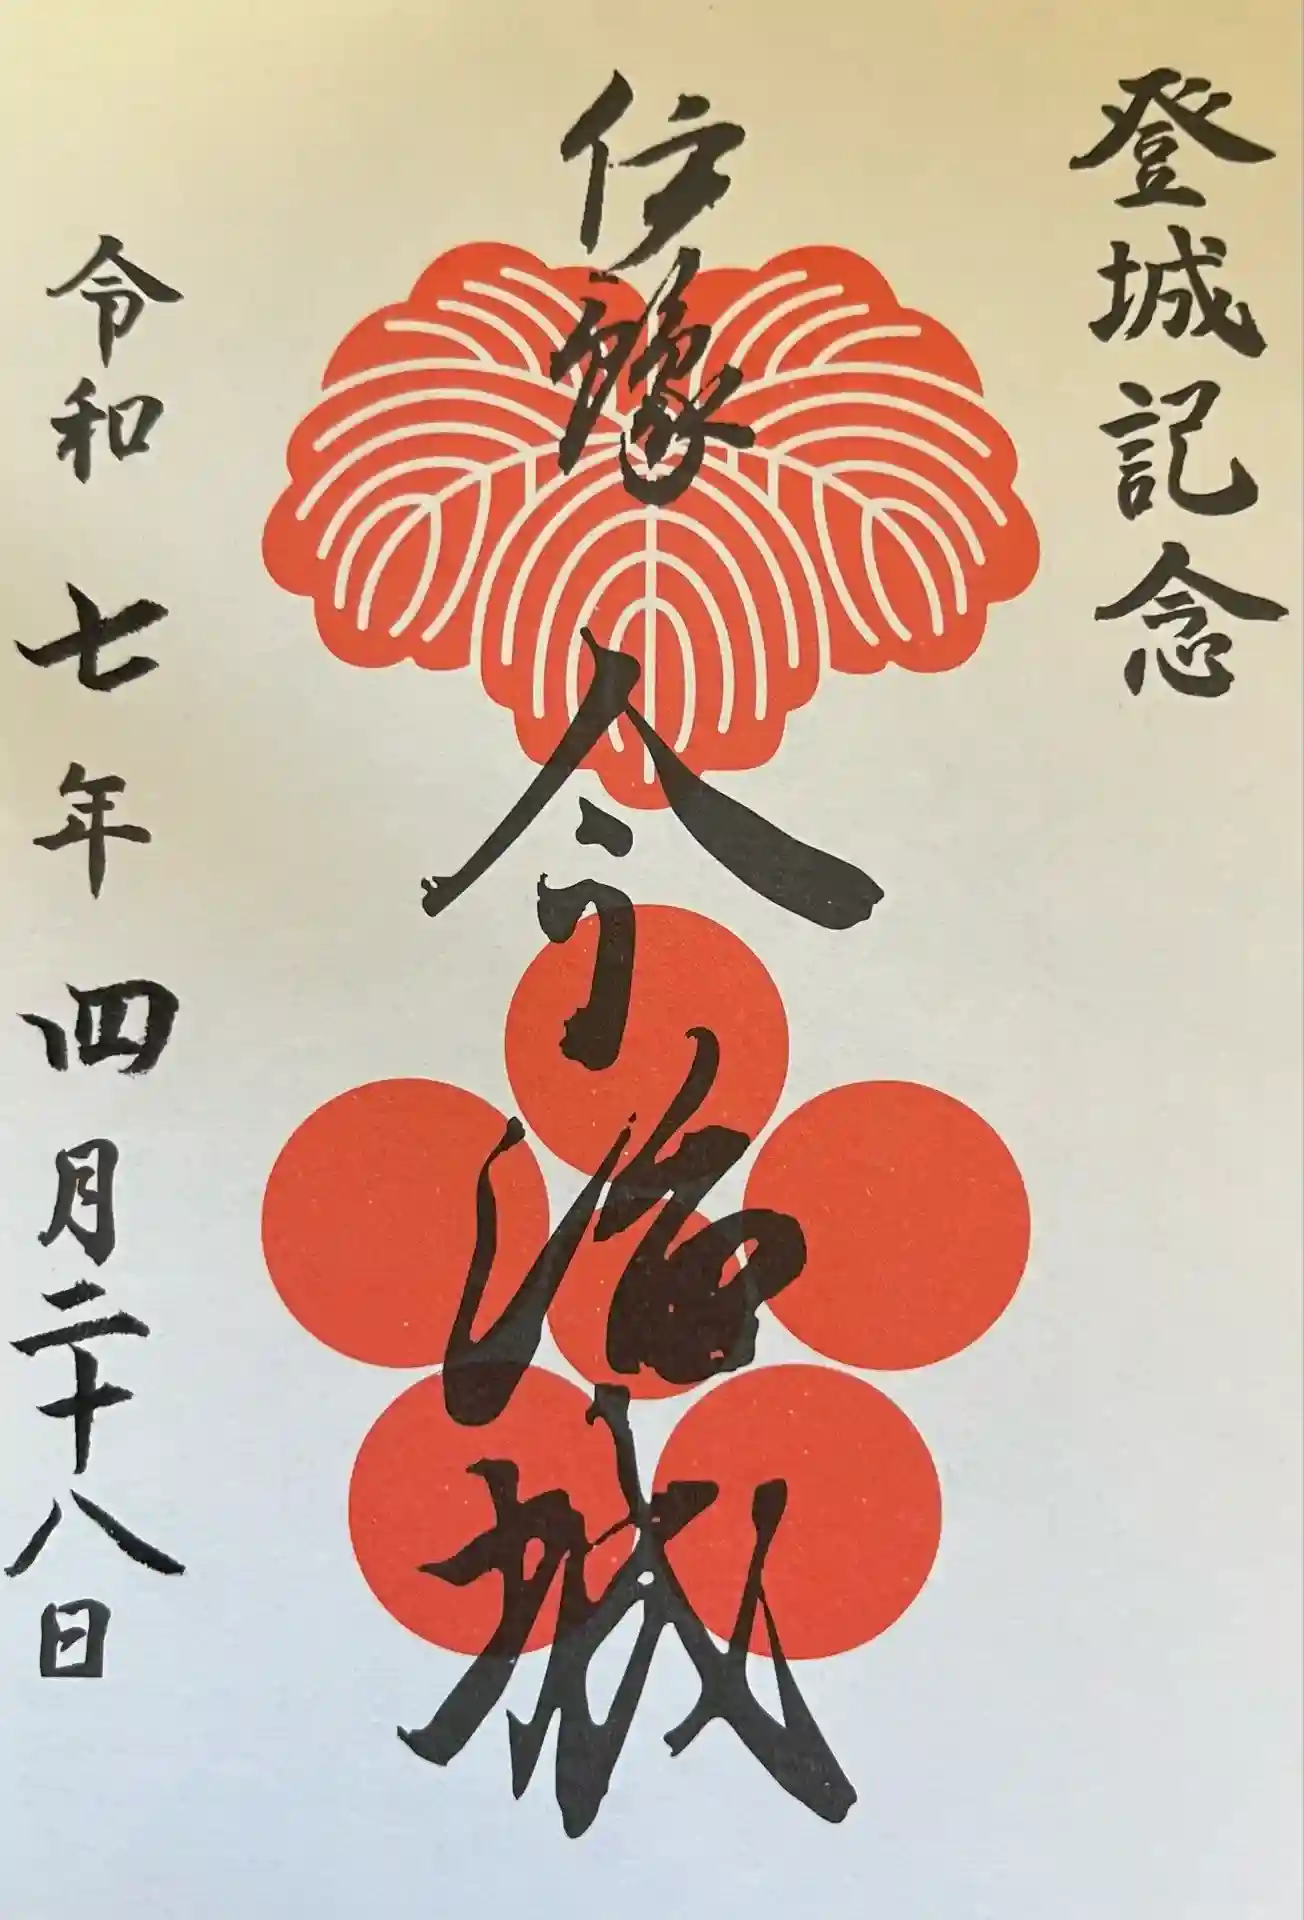 登城記念
伊豫
今治城
令和七年四月二十八日